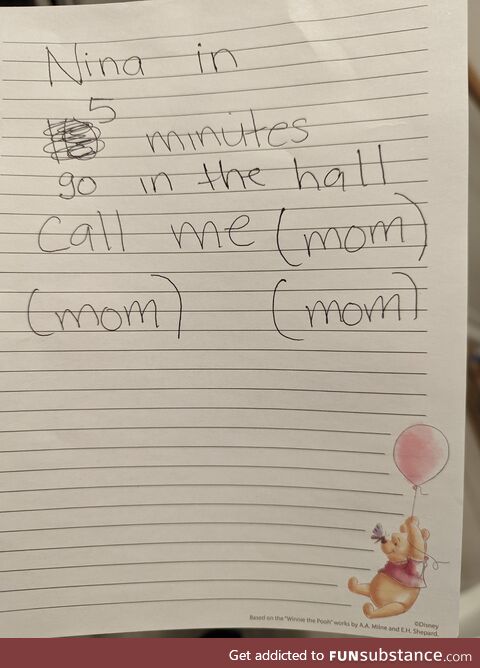 Nina in
5
minutes
go in the hall
call me (mom)
(mom) (mom)
Based on the "Winnie the Pooh" works by A.A. Milne and E.H. Shepard.
©Disney
Get addicted to FUNsubstance.com